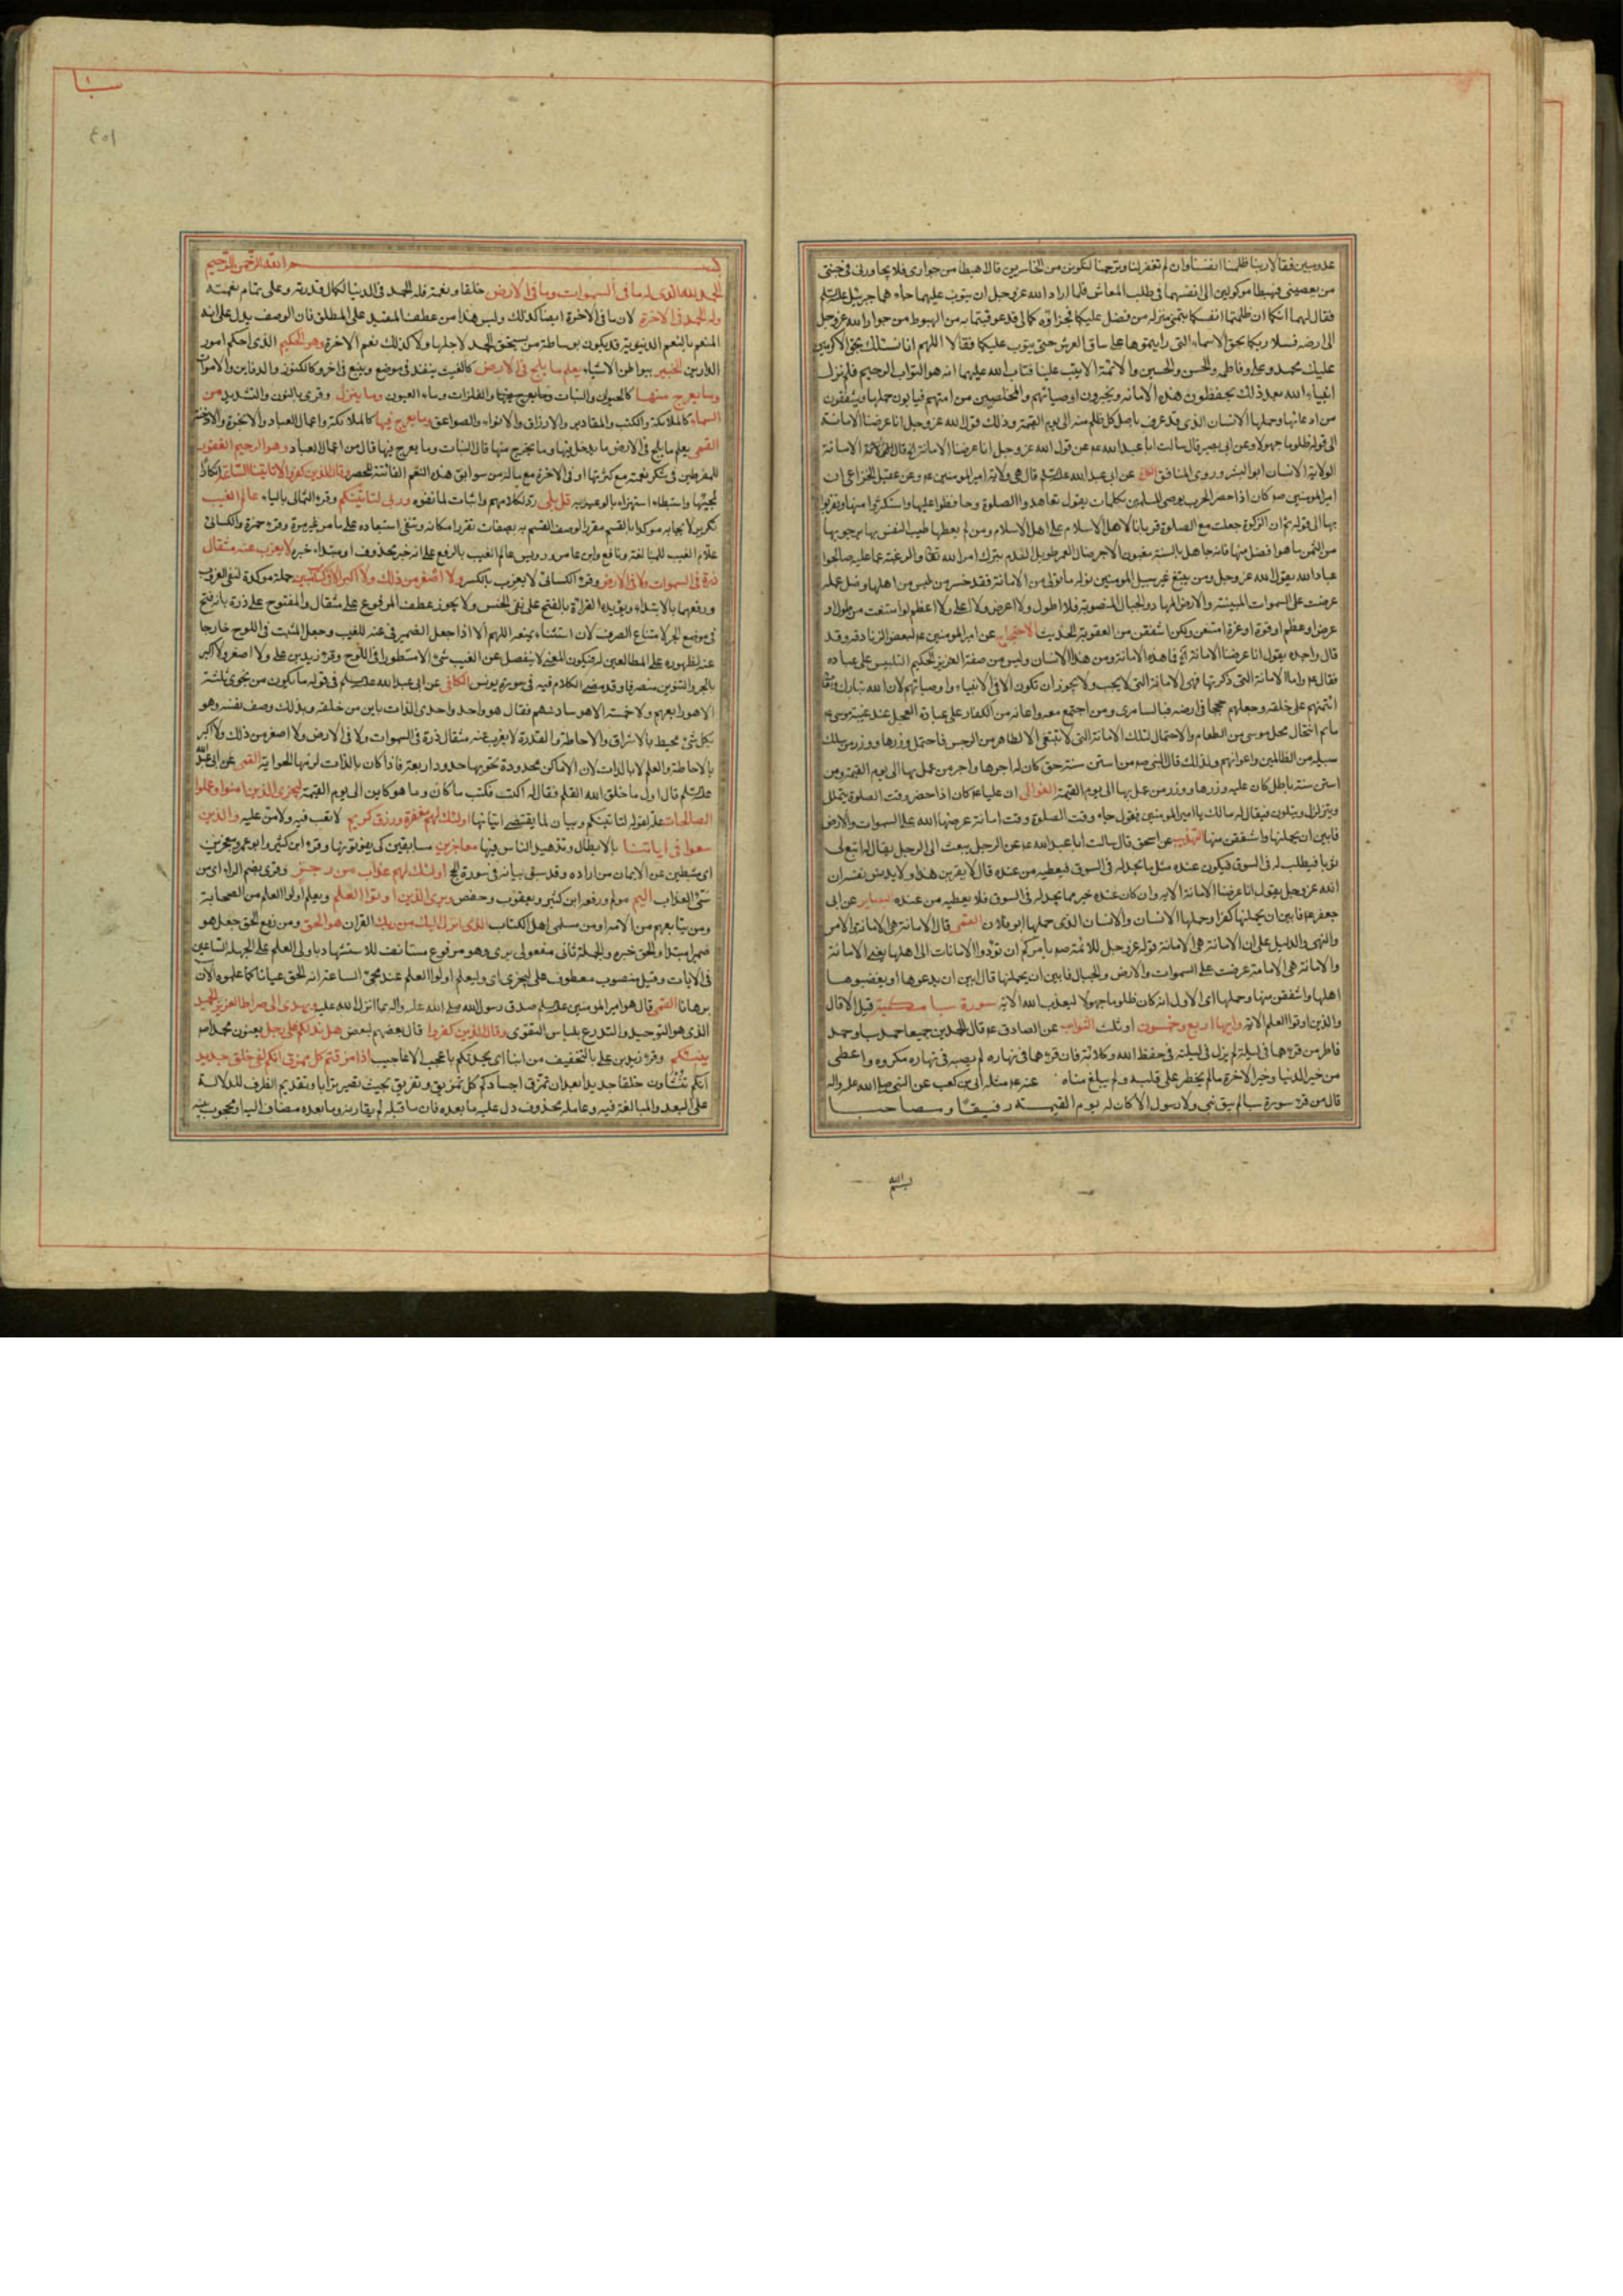 عدو مبين فقالا ربنا ظلمنا انفسنا وان لم تغفر لنا وترحمنا لنكونن من الخاسرين قال اهبطا من جواري فلا يجاورني في جنتي
من يعصيني فهبطا موكولين الى انفسهما في طلب المعاش فلما اراد الله عز وجل ان يتوب عليهما جاءهما جبرئيل
فقال لهما انكما ان ظلمتما انفسكما بتمني منزلة من فضل عليكما فجزاؤكما ما قد عوقبتما به من الهبوط من جوار الله عز وجل
الى ارضه فسلا ربكما بحق الاسماء التي رايتموها على ساق العرش حتى يتوب عليكما فقالا اللهم انا نسئلك بحق الاكرمين
عليك محمد وعلي وفاطمة والحسن والحسين والائمة الا تبت علينا فتاب الله عليهما انه هو التواب الرحيم فلم يزل
انبياء الله بعد ذلك يحفظون هذه الامانة ويخبرون اوصيائهم والمخلصين من امتهم فيابون حملها ويشفقون
من ادعائها وحملها الانسان الذي قد عرف باصل كل ظلم منه الى يوم القيمة وذلك قول الله عز وجل انا عرضنا الامانة
الى قوله ظلوما جهولا وعن ابي بصير قال سالت ابا عبد الله عن قول الله عز وجل انا عرضنا الامانة الاية قال الامانة
الولاية والانسان ابو الشرور المنافق عن ابي عبد الله قال هي ولاية امير المومنين وعن عقيل الخزاعي ان
امير المومنين كان اذا حضر الحرب يوصي للمسلمين بكلمات يقول تعاهدوا الصلوة وحافظوا عليها واستكثروا منها وتقربوا
بها الى قوله ثم ان الزكوة جعلت مع الصلوة قربانا لاهل الاسلام على اهل الاسلام ومن لم يعطها طيب النفس بها يرجو بها
من الثمن ما هو افضل منها فانه جاهل بالسنة مغبون الاجر ضال العمر طويل الندم بترك امر الله تعالى والرغبة عما عليه صالحوا
عباد الله يقول الله عز وجل ومن يتبع غير سبيل المومنين نوله ما تولى من الامانة فقد خسر من ليس من اهلها وضل عمله
عرضت على السموات المبنية والارض المهاد والجبال المنصوبة فلا اطول ولا اعرض ولا اعلى ولا اعظم لو امتنعت من طول او
عرض او عظم او قوة او عزة امتنعن ولكن اشفقن من العقوبة الحديث الاحتجاج عن امير المومنين لبعض الزنادقة وقد
قال واجده يقول انا عرضنا الامانة الاية فما هذه الامانة ومن هذا الانسان وليس من صفة العزيز الحكيم التلبيس على عباده
فقال واما الامانة التي ذكرتها فهي الامانة التي لا يجب ولا يجوز ان تكون الا في الانبياء واوصيائهم لان الله تبارك وتعالى
ائتمنهم على خلقه وجعلهم حججا في ارضه فبالسامري ومن اجتمع معه واعانه من الكفار على عبادة العجل عند غيبة موسى
ما تم انتحال محل موسى من الطعام والاحتمال لتلك الامانة التي لا تنبغي الا لطاهر من الرجس فاحتمل وزرها ووزر من سلك
سبيله من الظالمين واعوانهم ولذلك قال النبي من استن سنة حق كان له اجرها واجر من عمل بها الى يوم القيمة ومن
استن سنة باطل كان عليه وزرها ووزر من عمل بها الى يوم القيمة العوالي ان عليا كان اذا حضر وقت الصلوة يتململ
ويتزلزل ويتلون فيقال له مالك يا امير المومنين فيقول جاء وقت الصلوة وقت امانة عرضها الله على السموات والارض
فابين ان يحملنها واشفقن منها التهذيب عن اسحق قال سالت ابا عبد الله عن الرجل يبعث الى الرجل يقال له ابتع لي
ثوبا فيطلب له في السوق فيكون عنده مثل ما يجد له في السوق فيعطيه من عنده قال لا يقربن هذا ولا يدنس نفسه ان
الله عز وجل يقول انا عرضنا الامانة الاية وان كان عنده خير مما يجد له في السوق فلا يعطيه من عنده البصاير عن ابي
جعفر فابين ان يحملنها كفرا وحملها الانسان والانسان الذي حملها ابو فلان القمي قال الامانة هي الامامة والامر
والنهي والدليل على ان الامانة هي الامامة قوله عز وجل للائمة ان الله يامركم ان تؤدوا الامانات الى اهلها يعني الامامة
والامانة هي الامامة عرضت على السموات والارض والجبال فابين ان يحملنها قال ابين ان يدعوها او يغصبوها
اهلها واشفقن منها وحملها اي الاول انه كان ظلوما جهولا ليعذب الله الاية سورة سبا مكية قيل الا قال
والذين اوتوا العلم الاية وايها اربع وخمسون اوتلك الثواب عن الصادق قال الحمدين جميعا حمد سبا وحمد
فاطر من قرءهما في ليلة لم يزل في ليلته في حفظ الله وكلائه فان قرءهما في نهاره لم يصبه في نهاره مكروه واعطي
من خير الدنيا وخير الاخرة ما لم يخطر على قلبه ولم يبلغ مناه عنه مثله ابي بن كعب عن النبي صلى الله عليه واله
قال من قرء سورة سبا لم يبق نبي ولا رسول الا كان له يوم القيمة رفيقا ومصاحبا
بسم الله
سبا
بسم الله الرحمن الرحيم
الحمد لله الذي له ما في السموات وما في الارض خلقا ونعمة فله الحمد في الدنيا لكمال قدرته وعلى تمام نعمته
وله الحمد في الاخرة لان ما في الاخرة ايضا كذلك وليس هذا من عطف المقيد على المطلق فان الوصف يدل على انه
المنعم بالنعم الدنيوية قد يكون بوساطة من يستحق الحمد لاجلها ولا كذلك نعم الاخرة وهو الحكيم الذي احكم امور
الدارين الخبير ببواطن الاشياء يعلم ما يلج في الارض كالغيث ينفذ في موضع وينبع في اخر وكالكنوز والدفاين والاموات
وما يخرج منها كالحيوان والنبات والفلزات وماء العيون وما ينزل وقرئ بالنون والتشديد من
السماء كالملائكة والكتب والمقادير والارزاق والانواء والصواعق وما يعرج فيها كالملائكة واعمال العباد والابخرة والادخنة
القمي يعلم ما يلج في الارض ما يدخل فيها وما يخرج منها قال النبات وما يعرج فيها قال من اعمال العباد وهو الرحيم الغفور
للمفرطين في شكر نعمته مع كثرتها او في الاخرة مع ماله من سوابق هذه النعم الفائتة للحصر وقال الذين كفروا لا تاتينا الساعة انكار
لمجيئها واستبطاء استهزاء بالوعد به قل بلى رد لكلامهم واثبات لما نفوه وربي لتاتينكم وقرء الثمالي بالياء عالم الغيب
تكرير لايجابه موكدا بالقسم مقررا لوصف القسم به بصفات تقرر امكانه وتنفي استبعاده على ما مر غير مرة وقرء حمزة والكسائي
علام الغيب للمبالغة ونافع وابن عامر ورويس عالم الغيب بالرفع على انه خبر محذوف او مبتداء خبره لا يعزب عنه مثقال
ذرة في السموات ولا في الارض وقرء الكسائي لا يعزب بالكسر ولا اصغر من ذلك ولا اكبر الا في كتاب مبين جملة موكدة لنفي العزوب
ورفعهما بالابتداء ويؤيده القراءة بالفتح على نفي الجنس ولا يجوز عطف المرفوع على مثقال والمفتوح على ذرة بانه فتح
في موضع الجر لامتناع الصرف لان الاستثناء يمنعه اللهم الا اذا جعل الضمير في عنه للغيب وجعل المثبت في اللوح خارجا
عنه لظهوره على المطالعين له فيكون المعنى لا ينفصل عن الغيب شئ الا مسطورا في اللوح وقرء زيد بن علي ولا اصغر ولا اكبر
بالجر والتنوين منصرفا وقد مضى الكلام فيه في سورة يونس الكافي عن ابي عبد الله في قوله ما يكون من نجوى ثلثة
الا هو رابعهم ولا خمسة الا هو سادسهم فقال هو واحد واحدي الذات باين من خلقه وبذلك وصف نفسه وهو
بكل شئ محيط بالاشراف والاحاطة والقدرة لا يعزب عنه مثقال ذرة في السموات ولا في الارض ولا اصغر من ذلك ولا اكبر
بالاحاطة والعلم لا بالذات لان الاماكن محدودة تحويها حدود اربعة فاذا كان بالذات لزمها الحواية القمي عن ابي عبد الله
قال اول ما خلق الله القلم فقال له اكتب فكتب ما كان وما هو كاين الى يوم القيمة ليجزي الذين امنوا وعملوا
الصالحات علة لقوله لتاتينكم وبيان لما يقتضي اتيانها اولئك لهم مغفرة ورزق كريم لا تعب فيه ولا من عليه والذين
سعوا في اياتنا بالابطال وتزهيد الناس فيها معاجزين مسابقين كي يفوتونها وقرء ابن كثير وابو عمرو معجزين
اي مثبطين عن الايمان من اراده وقد سبق بيانه في سورة الحج اولئك لهم عذاب من رجز وقرئ بضم الراء اي من
سئ العذاب اليم مولم ورفعه ابن كثير ويعقوب وحفص ويرى الذين اوتوا العلم ويعلم اولوا العلم من الصحابة
ومن يتابعهم من الامة او من مسلمي اهل الكتاب الذي انزل اليك من ربك القران هو الحق ومن رفع الحق جعل هو
ضمير مبتداء والحق خبره والجملة ثاني مفعولي يرى وهو مرفوع مستانف للاستشهاد باولي العلم على الجهلة الساعين
في الايات وقيل منصوب معطوف على ليجزي اي وليعلم اولوا العلم عند مجئ الساعة انه الحق عيانا كما علموه الان
برهانا القمي قال هو امير المومنين صدق رسول الله صلى الله عليه واله بما انزل الله عليه ويهدي الى صراط العزيز الحميد
الذي هو التوحيد والتدرع بلباس التقوى وقال الذين كفروا قال بعضهم لبعض هل ندلكم على رجل يعنون محمدا
ينبئكم وقرء زيد بن علي بالتخفيف من انبا اي يحدثكم باعجب الاعاجيب اذا مزقتم كل ممزق انكم لفي خلق جديد
انكم تنشاون خلقا جديدا بعد ان تمزق اجسادكم كل تمزيق وتفريق بحيث تصير ترابا وتقديم الظرف للدلالة
على البعد والمبالغة فيه وعامله محذوف دل عليه ما بعده فان ما قبله لم يقارنه وما بعده مضاف اليه او محجوب بينه